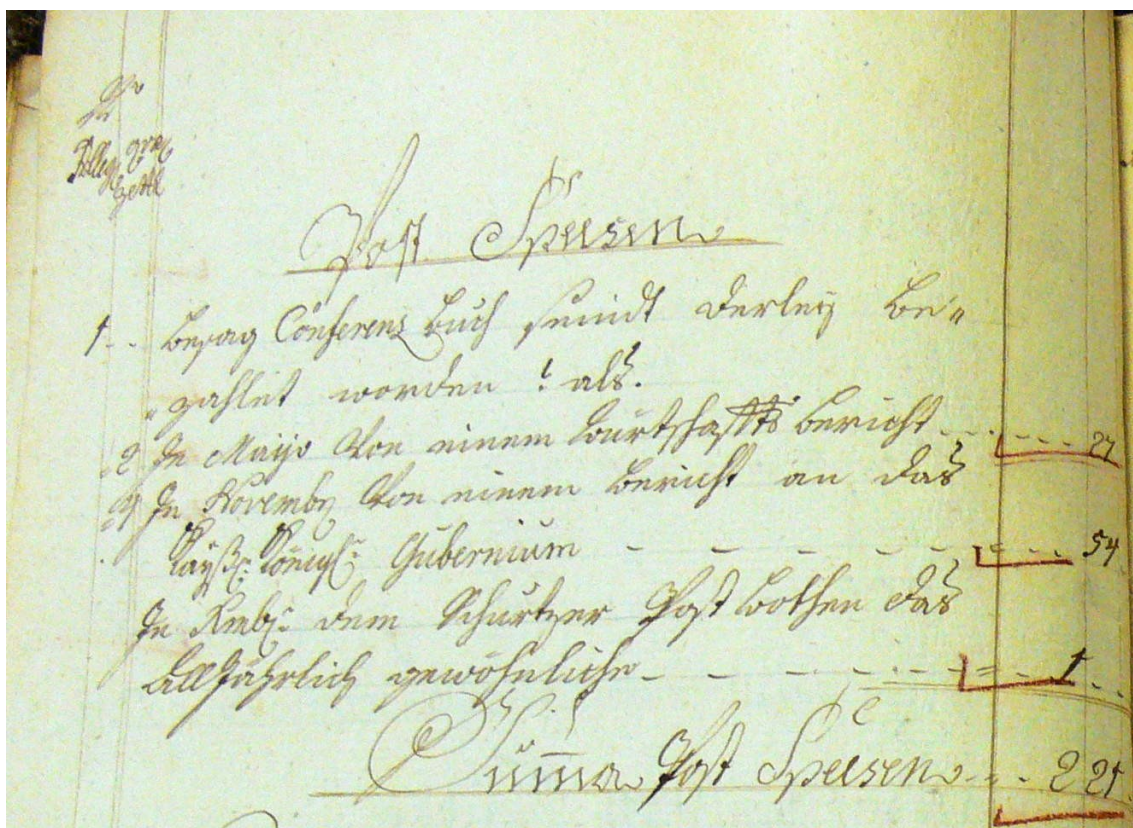 Post Speesen
1 .. besag Conferenz buch seindt derley be„
„zahlet worden : als.
2 In Mayo Von einem Wurtschaffts bericht - - - - - 27
In Novembr Von einem bericht an das
Kayßl: Königl: Gubernium - - - - - - - - 54
In Xmbr: dem Schurtzer Post bothen das
all Jährlich gewöhnliche - - - - - - - - 1 . .
Summa Post Speesen - - . 2 21